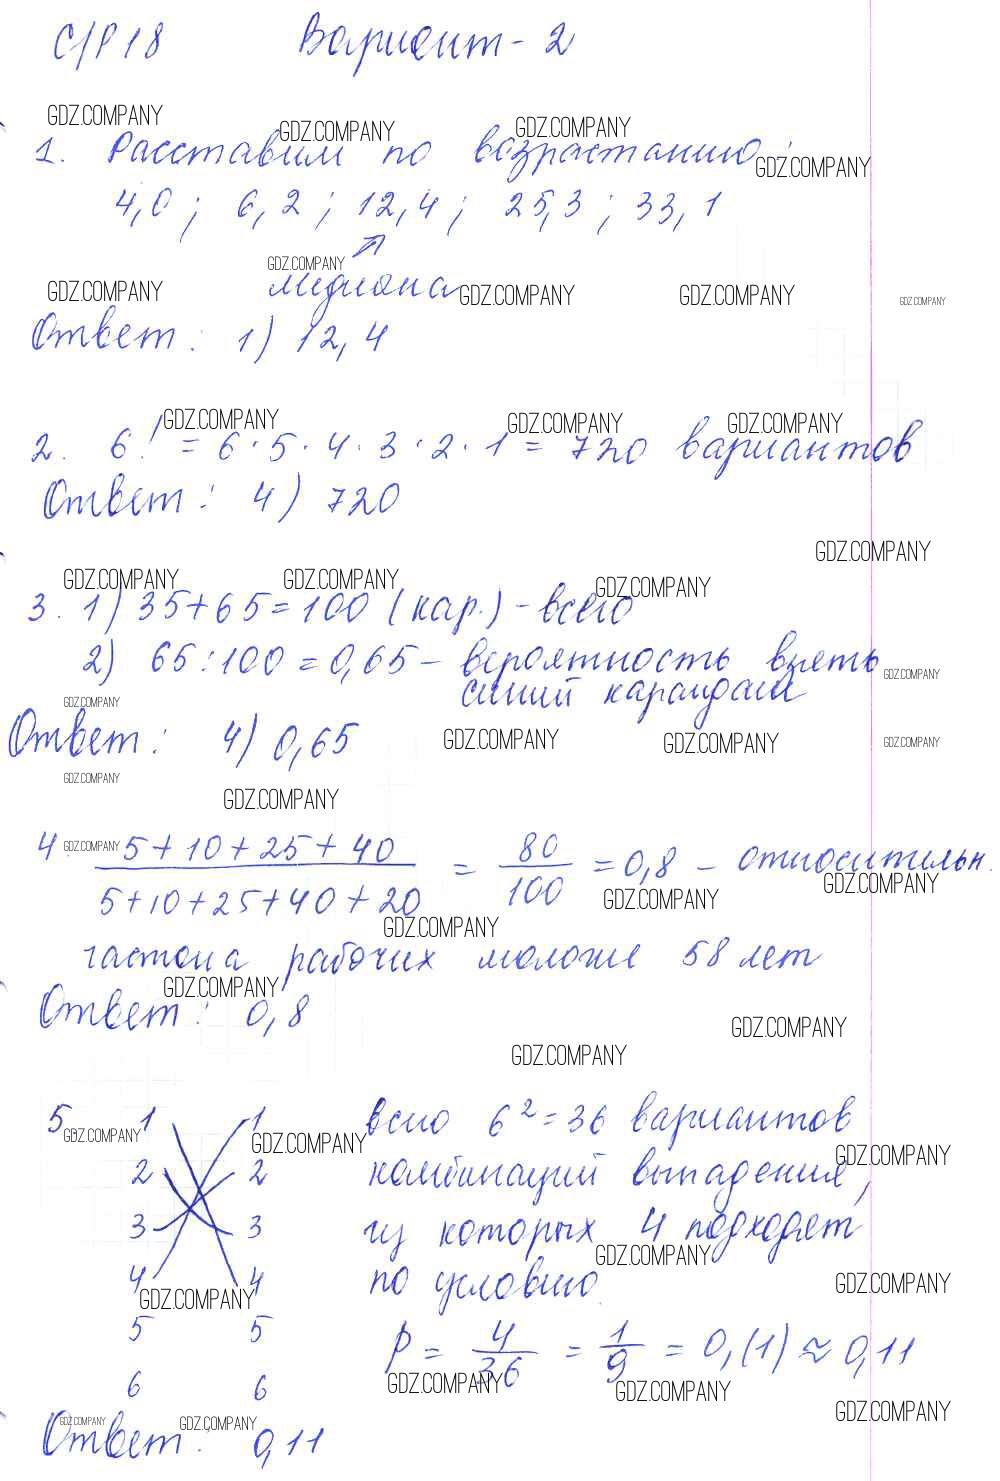 С/Р 18 Вариант - 2
GDZ.COMPANY GDZ.COMPANY GDZ.COMPANY
1. Расставим по возрастанию: GDZ.COMPANY
4,0 ; 6,2 ; 12,4 ; 25,3 ; 33,1
GDZ.COMPANY
GDZ.COMPANY медиана GDZ.COMPANY GDZ.COMPANY GDZ.COMPANY
Ответ: 1) 12,4
GDZ.COMPANY GDZ.COMPANY GDZ.COMPANY
2. 6! = 6·5·4·3·2·1 = 720 вариантов
Ответ: 4) 720
GDZ.COMPANY
GDZ.COMPANY GDZ.COMPANY GDZ.COMPANY
3. 1) 35+65=100 (кар.) - всего
2) 65:100 = 0,65 - вероятность взять GDZ.COMPANY
GDZ.COMPANY синий карандаш
Ответ: 4) 0,65 GDZ.COMPANY GDZ.COMPANY GDZ.COMPANY
GDZ.COMPANY
GDZ.COMPANY
4. GDZ.COMPANY 5+10+25+40 / 5+10+25+40+20 = 80/100 = 0,8 - относительн.
GDZ.COMPANY GDZ.COMPANY
GDZ.COMPANY
частота рабочих моложе 58 лет
GDZ.COMPANY
Ответ: 0,8
GDZ.COMPANY
GDZ.COMPANY
5 1 1 всего 6²=36 вариантов
GDZ.COMPANY GDZ.COMPANY GDZ.COMPANY
2 2 комбинаций выпадения,
3 3 из которых 4 подходят
GDZ.COMPANY
4 4 по условию GDZ.COMPANY
GDZ.COMPANY
5 5 p = 4/36 = 1/9 = 0,(1) ≈ 0,11
6 6 GDZ.COMPANY GDZ.COMPANY
GDZ.COMPANY GDZ.COMPANY GDZ.COMPANY
Ответ: 0,11